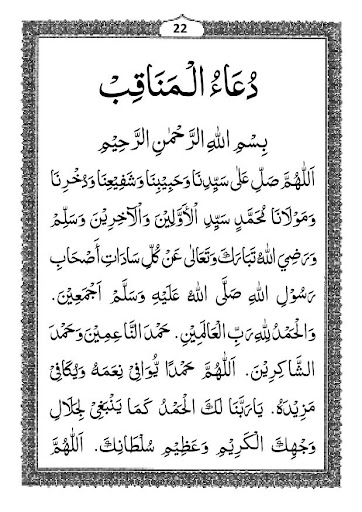 22
دُعَاءُ الْمَنَاقِبْ
بِسْمِ اللهِ الرَّحْمٰنِ الرَّحِيْمِ
اَللّٰهُمَّ صَلِّ عَلٰى سَيِّدِنَا وَحَبِيْبِنَا وَشَفِيْعِنَا وَذُخْرِنَا
وَمَوْلَانَا مُحَمَّدٍ سَيِّدِ الْأَوَّلِيْنَ وَالْآخِرِيْنَ وَسَلِّمْ
وَرَضِيَ اللهُ تَبَارَكَ وَتَعَالٰى عَنْ كُلِّ سَادَاتِ أَصْحَابِ
رَسُوْلِ اللهِ صَلَّى اللهُ عَلَيْهِ وَسَلَّمَ اَجْمَعِيْنَ.
وَالْحَمْدُ لِلّٰهِ رَبِّ الْعَالَمِيْنَ. حَمْدَ النَّاعِمِيْنَ وَحَمْدَ
الشَّاكِرِيْنَ. اَللّٰهُمَّ حَمْدًا يُّوَافِيْ نِعَمَهُ وَيُكَافِيْ
مَزِيْدَهُ. يَا رَبَّنَا لَكَ الْحَمْدُ كَمَا يَنْبَغِيْ لِجَلَالِ
وَجْهِكَ الْكَرِيْمِ وَعَظِيْمِ سُلْطَانِكَ. اَللّٰهُمَّ